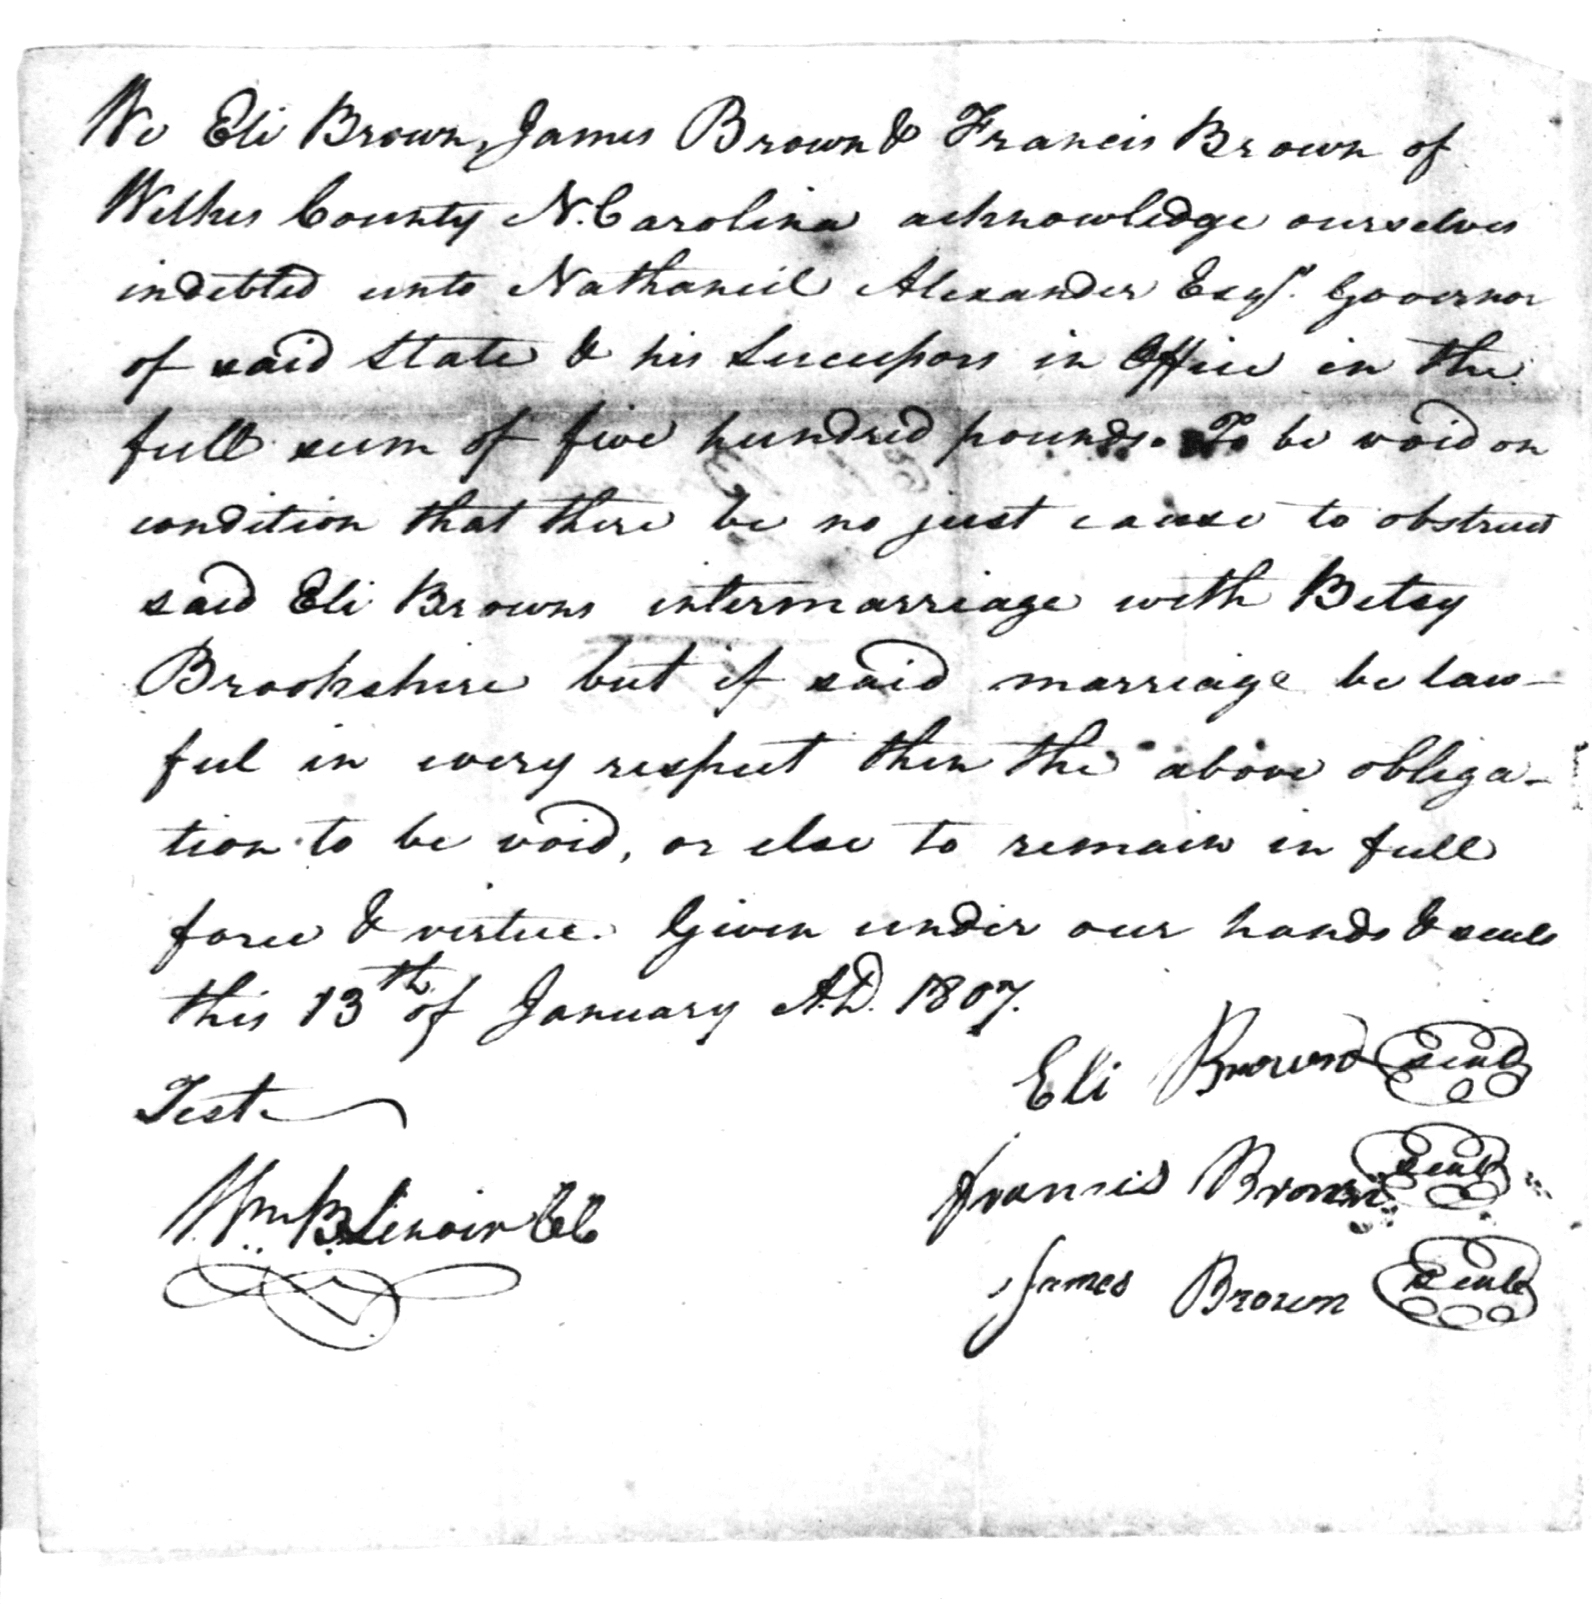 We Eli Brown, James Brown & Francis Brown of
Wilkes County N. Carolina acknowledge ourselves
indebted unto Nathaniel Alexander Esqr. Governor
of said State & his Successors in Office in the
full sum of five hundred pounds. To be void on
condition that there be no just cause to obstruct
said Eli Browns intermarriage with Betsy
Brookshire but if said marriage be law-
ful in every respect then the above obliga-
tion to be void, or else to remain in full
force & virtue. Given under our hands & seals
this 13th of January A.D. 1807.
Eli Brown seal
Test
Francis Brown seal
Wm. B. Lenoir CC
James Brown seal